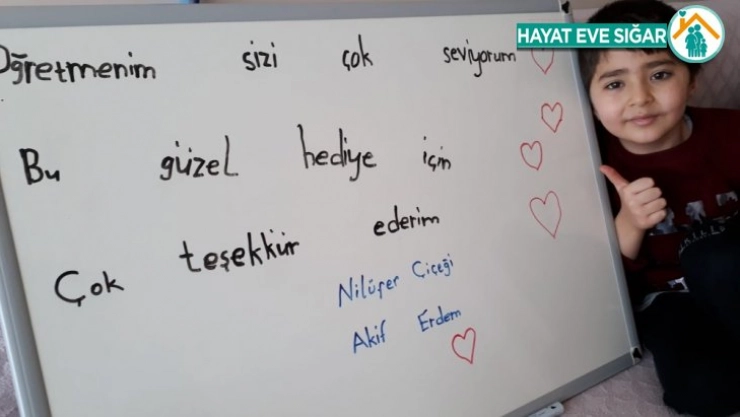 HAYAT EVE SIĞAR
Öğretmenim sizi çok seviyorum
Bu güzel hediye için
Çok teşekkür ederim
Nilüfer Çiçeği
Akif Erdem